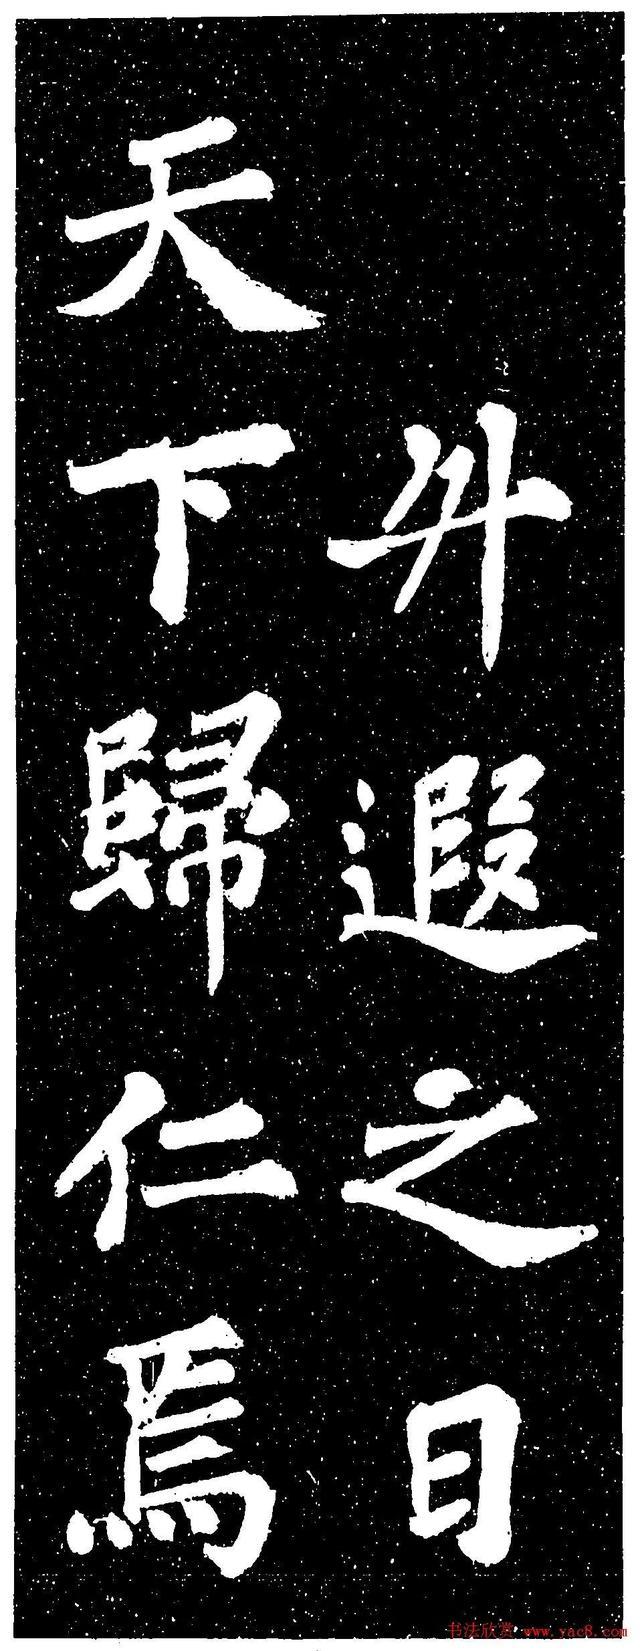 升遐之日
天下歸仁焉
书法欣赏 www.yac8.com